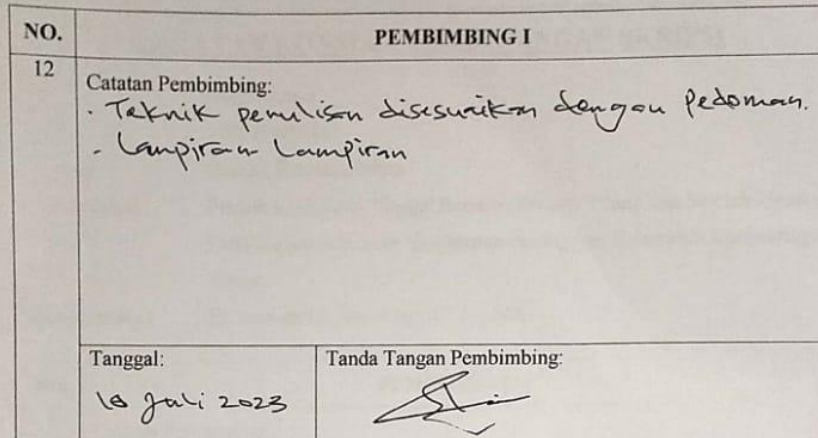 NO.
PEMBIMBING I
12
Catatan Pembimbing:
- Teknik penulisan disesuaikan dengan Pedoman.
- Lampiran Lampiran
Tanggal:
Juli 2023
Tanda Tangan Pembimbing: